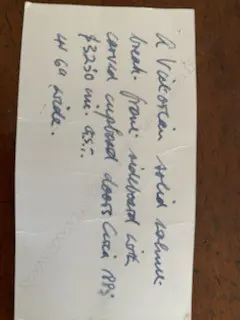 A Victorian solid
break-front sideboard with
carved cupboard doors Circa
$3250 incl G.S.T.
wide.